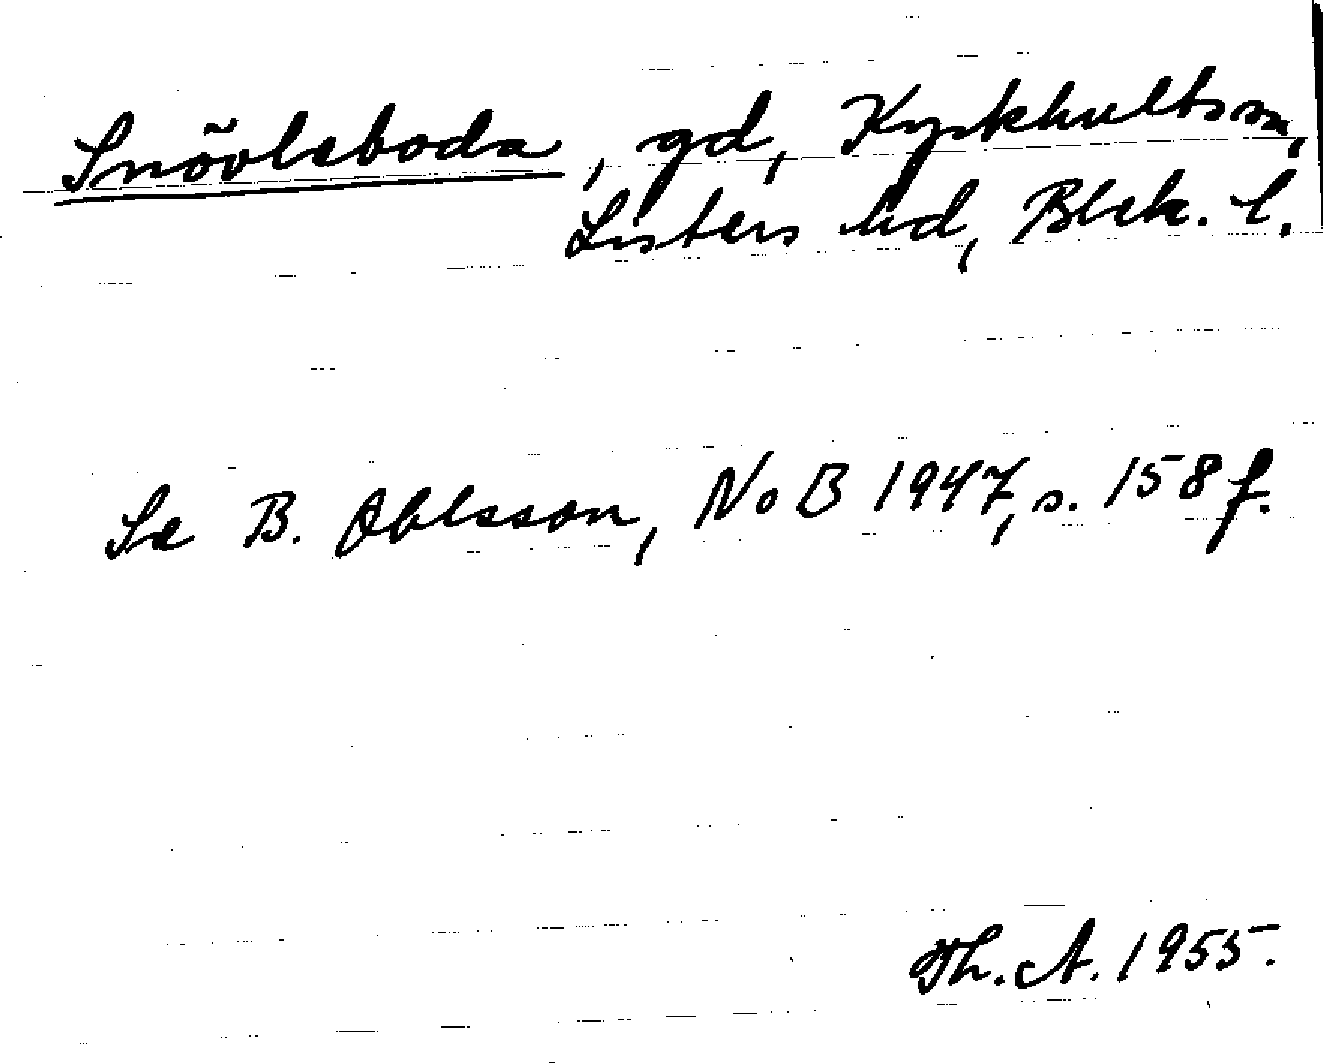 Snövleboda, gd, Kyrkhults sn,
Listers hd, Blek. l.
Se B. Ohlsson, NoB 1947, s. 158 f.
Th. A. 1955.